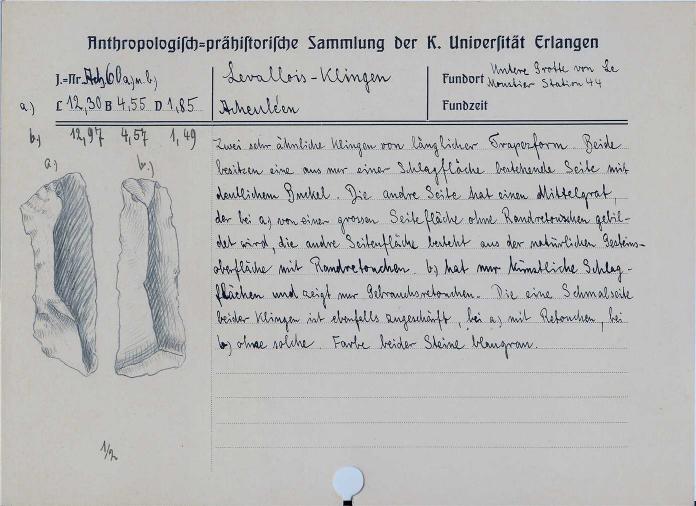 Anthropologisch=prähistorische Sammlung der K. Universität Erlangen
J.=Nr. Ach 60 a) u. b)
Levallois-Klingen
Fundort Untere Grotte von Le Moustier Station 44
a.) L 12,30 B 4,55 D 1,85
Acheuléen
Fundzeit
b.) 12,97 4,57 1,49
a.) b.)
Zwei sehr ähnliche Klingen von länglicher Trapezform. Beide
besitzen eine aus nur einer Schlagfläche bestehende Seite mit
deutlichem Buckel. Die andre Seite hat einen Mittelgrat,
der bei a) von einer grossen Seitefläche ohne Randretouschen gebil-
det wird, die andre Seitenfläche besteht aus der natürlichen Gesteins-
oberfläche mit Randretouchen. b) hat nur künstliche Schlag-
flächen und zeigt nur Gebrauchsretouchen. Die eine Schmalseite
beider Klingen ist ebenfalls zugeschärft, bei a) mit Retouchen, bei
b) ohne solche. Farbe beider Steine blaugrau.
1/2